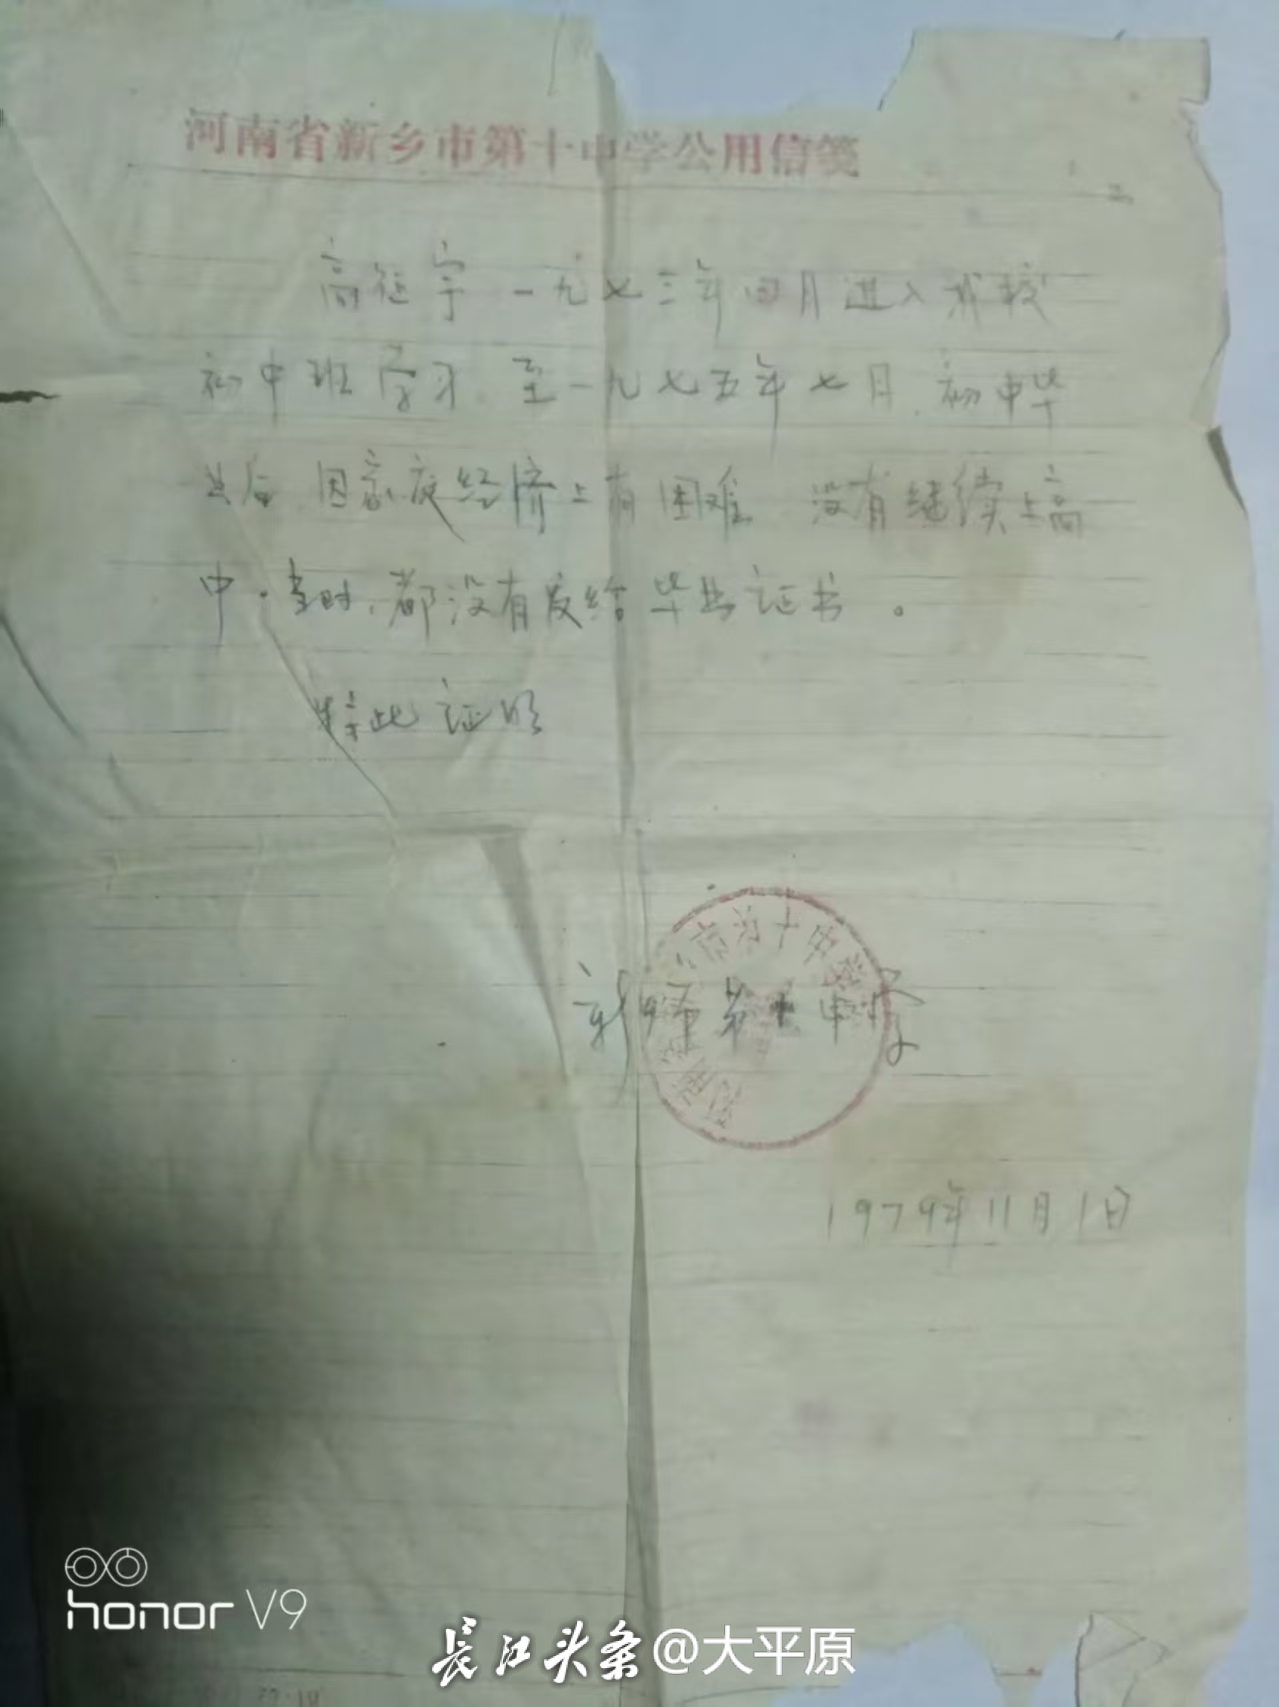 河南省新乡市第十中学公用信笺
高征宇一九七三年四月进入我校
初中班学习。至一九七五年七月，初中毕
业后，因家庭经济上有困难，没有继续上高
中。当时，都没有发给毕业证书。
特此证明
市第十中学
新乡市第十中学
1979年11月1日
honor V9
长江头条@大平原